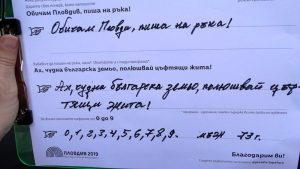 Обичам Пловдив, пиша на ръка!
Обичам Пловдив, пиша на ръка!
Ах, чудна българска земьо, полюшвай цъфтящи жита!
Ах, чудна българска земьо, полюшвай цъф-
тящи жита!
0 до 9
0,1,2,3,4,5,6,7,8,9. мъж 73г.
ПЛОВДИВ 2019
Благодарим ви!